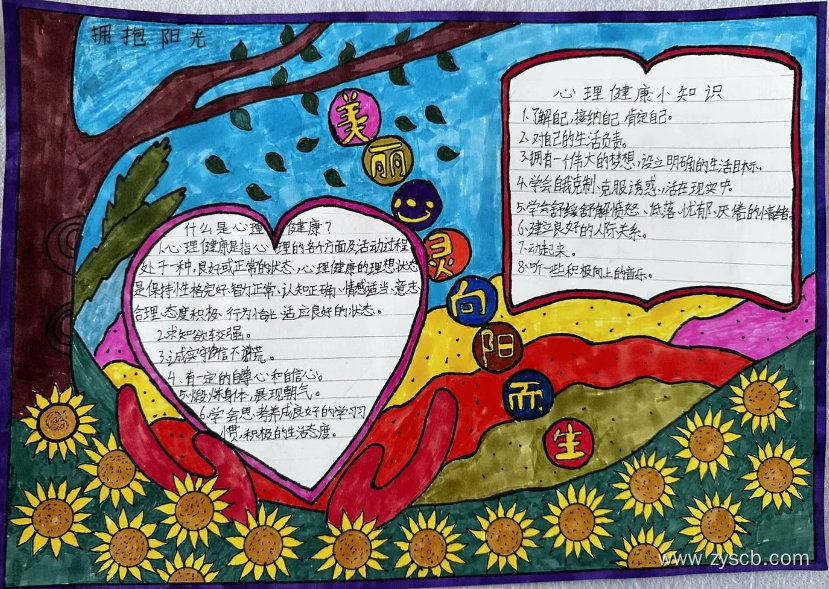 拥抱阳光
美
丽
心
灵
向
阳
而
生
什么是心理健康?
1.心理健康是指心理的各个方面及活动过程
处于一种良好或正常的状态,心理健康的理想状态
是保持性格完好、智力正常、认知正确、情感适当、意志
合理、态度积极、行为恰当、适应良好的状态。
2.求知欲较强。
3.诚实守信不撒谎。
4、有一定的自尊心和自信心。
5.煅炼身体,展现朝气。
6.学会思考养成良好的学习
惯,积极的生活态度。
心理健康小知识
1.了解自己,接纳自己,肯定自己。
2.对自己的生活负责。
3.拥有一个伟大的梦想,设立明确的生活目标。
4.学会自我克制、克服诱惑,活在现实中。
5.学会舒缓舒解愤怒、低落、忧郁、厌倦的小情绪
6.建立良好的人际关系。
7.动起来。
8.听一些积极向上的音乐。
www.zyscb.com